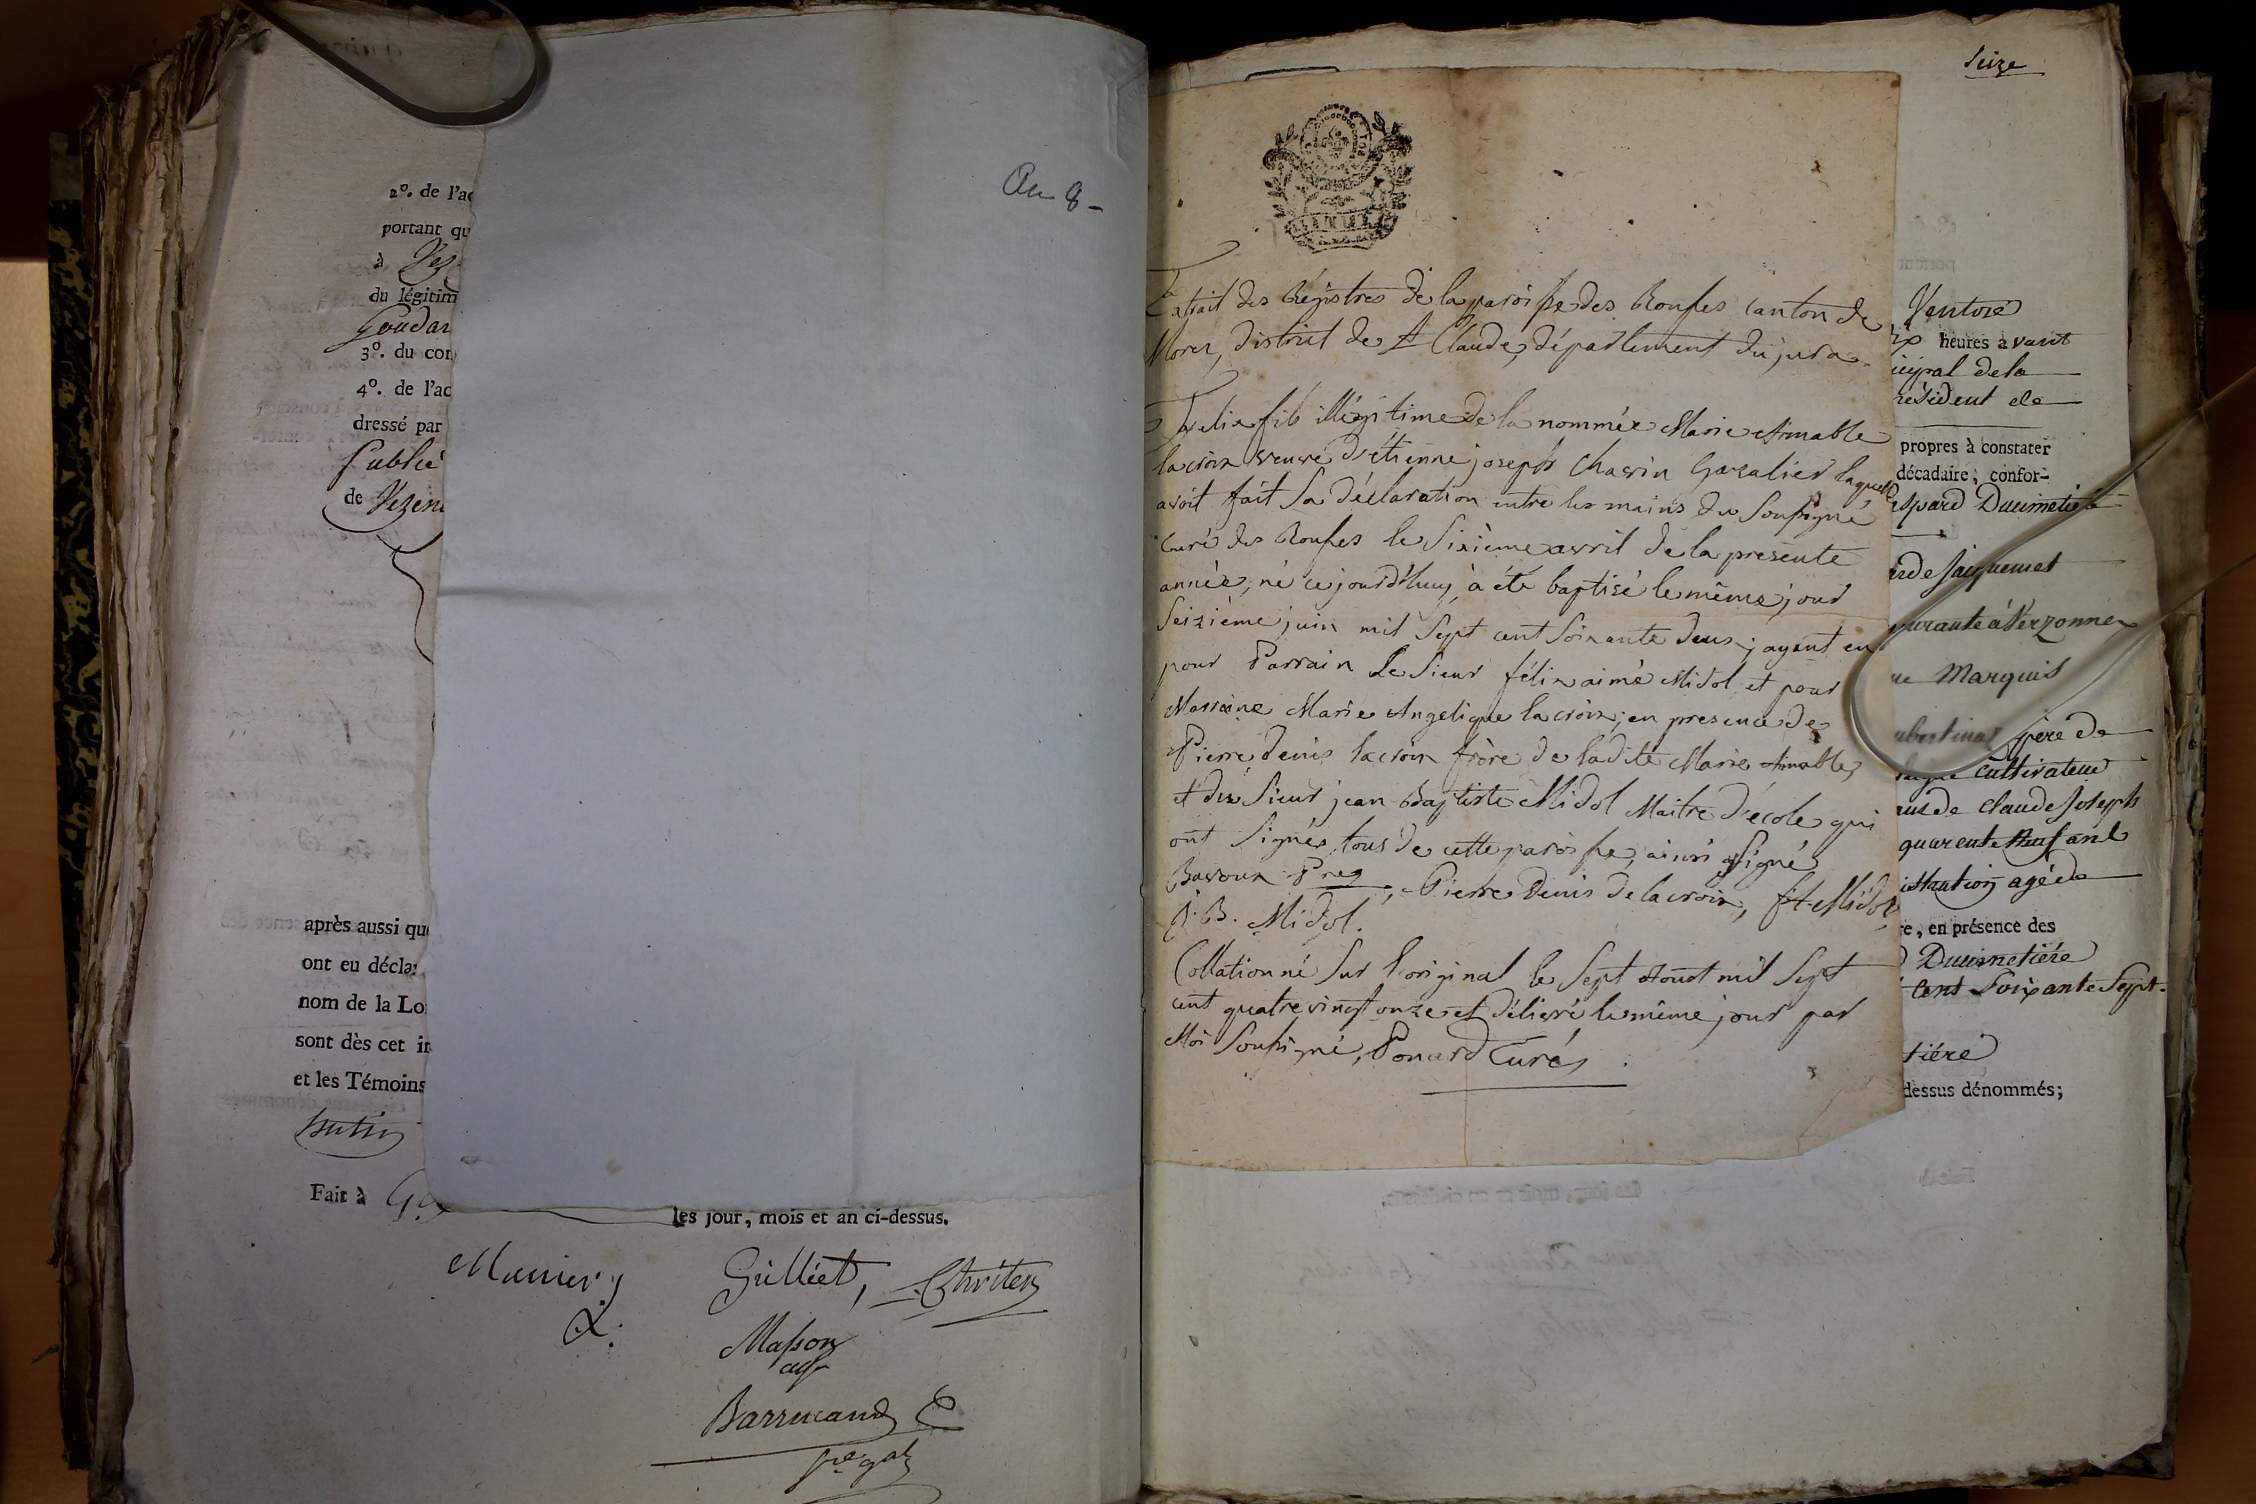 2º. de l'ac
portant qu
à Vez
du légitim
Goudar
3º. du con
4º. de l'ac
dressé par
publié
de Vezen
après aussi que
ont eu décla
nom de la Lo
sont dès cet in
et les Témoins
Fait à
les jour, mois et an ci-dessus.
Munier
Gilliet,
Masson
Barrucand
An 8 -
Seize
Extrait des Régistres de la paroisse des Rousses canton de
Morez, district de St Claude, département du jura.
Felix fils illégitime de la nommée Marie Aimable
lacroix veuve d'étienne joseph Chavin Gazalier laquelle
avoit fait sa déclaration entre les mains du soussigné
Curé des Rousses le sixième avril de la presente
année, né cejourd'huy, à été baptisé le même jour
seizième juin mil sept cent soixante deux; ayant eu
pour Parrain le sieur félix aimé Midol et pour
Marraine Marie Angelique lacroix; en presence de
Pierre denis lacroix frère de ladite Marie Aimable,
et du sieur jean Baptiste Midol Maitre d'école qui
ont signés, tous de cette paroisse, ainsi signé
Bavoux , Pierre Denis Delacroix, f A Midol,
J. B. Midol.
Collationné sur l'original le sept Aout mil sept
cent quatrevingt onze et délivré le même jour par
Moi soussigné, Ponard Curé.
Ventose
heures avant
icipal de la
résident de
propres à constater
décadaire; confor-
spard Ducimetière
de Jacquemet
urante à Verzonne
ue Marquis
père de
cultivateur
aus de Claude Joseph
quarente neuf ans
agée de
re, en présence des
Ducimetière
cent soixante sept.
tiére
dessus dénommés;